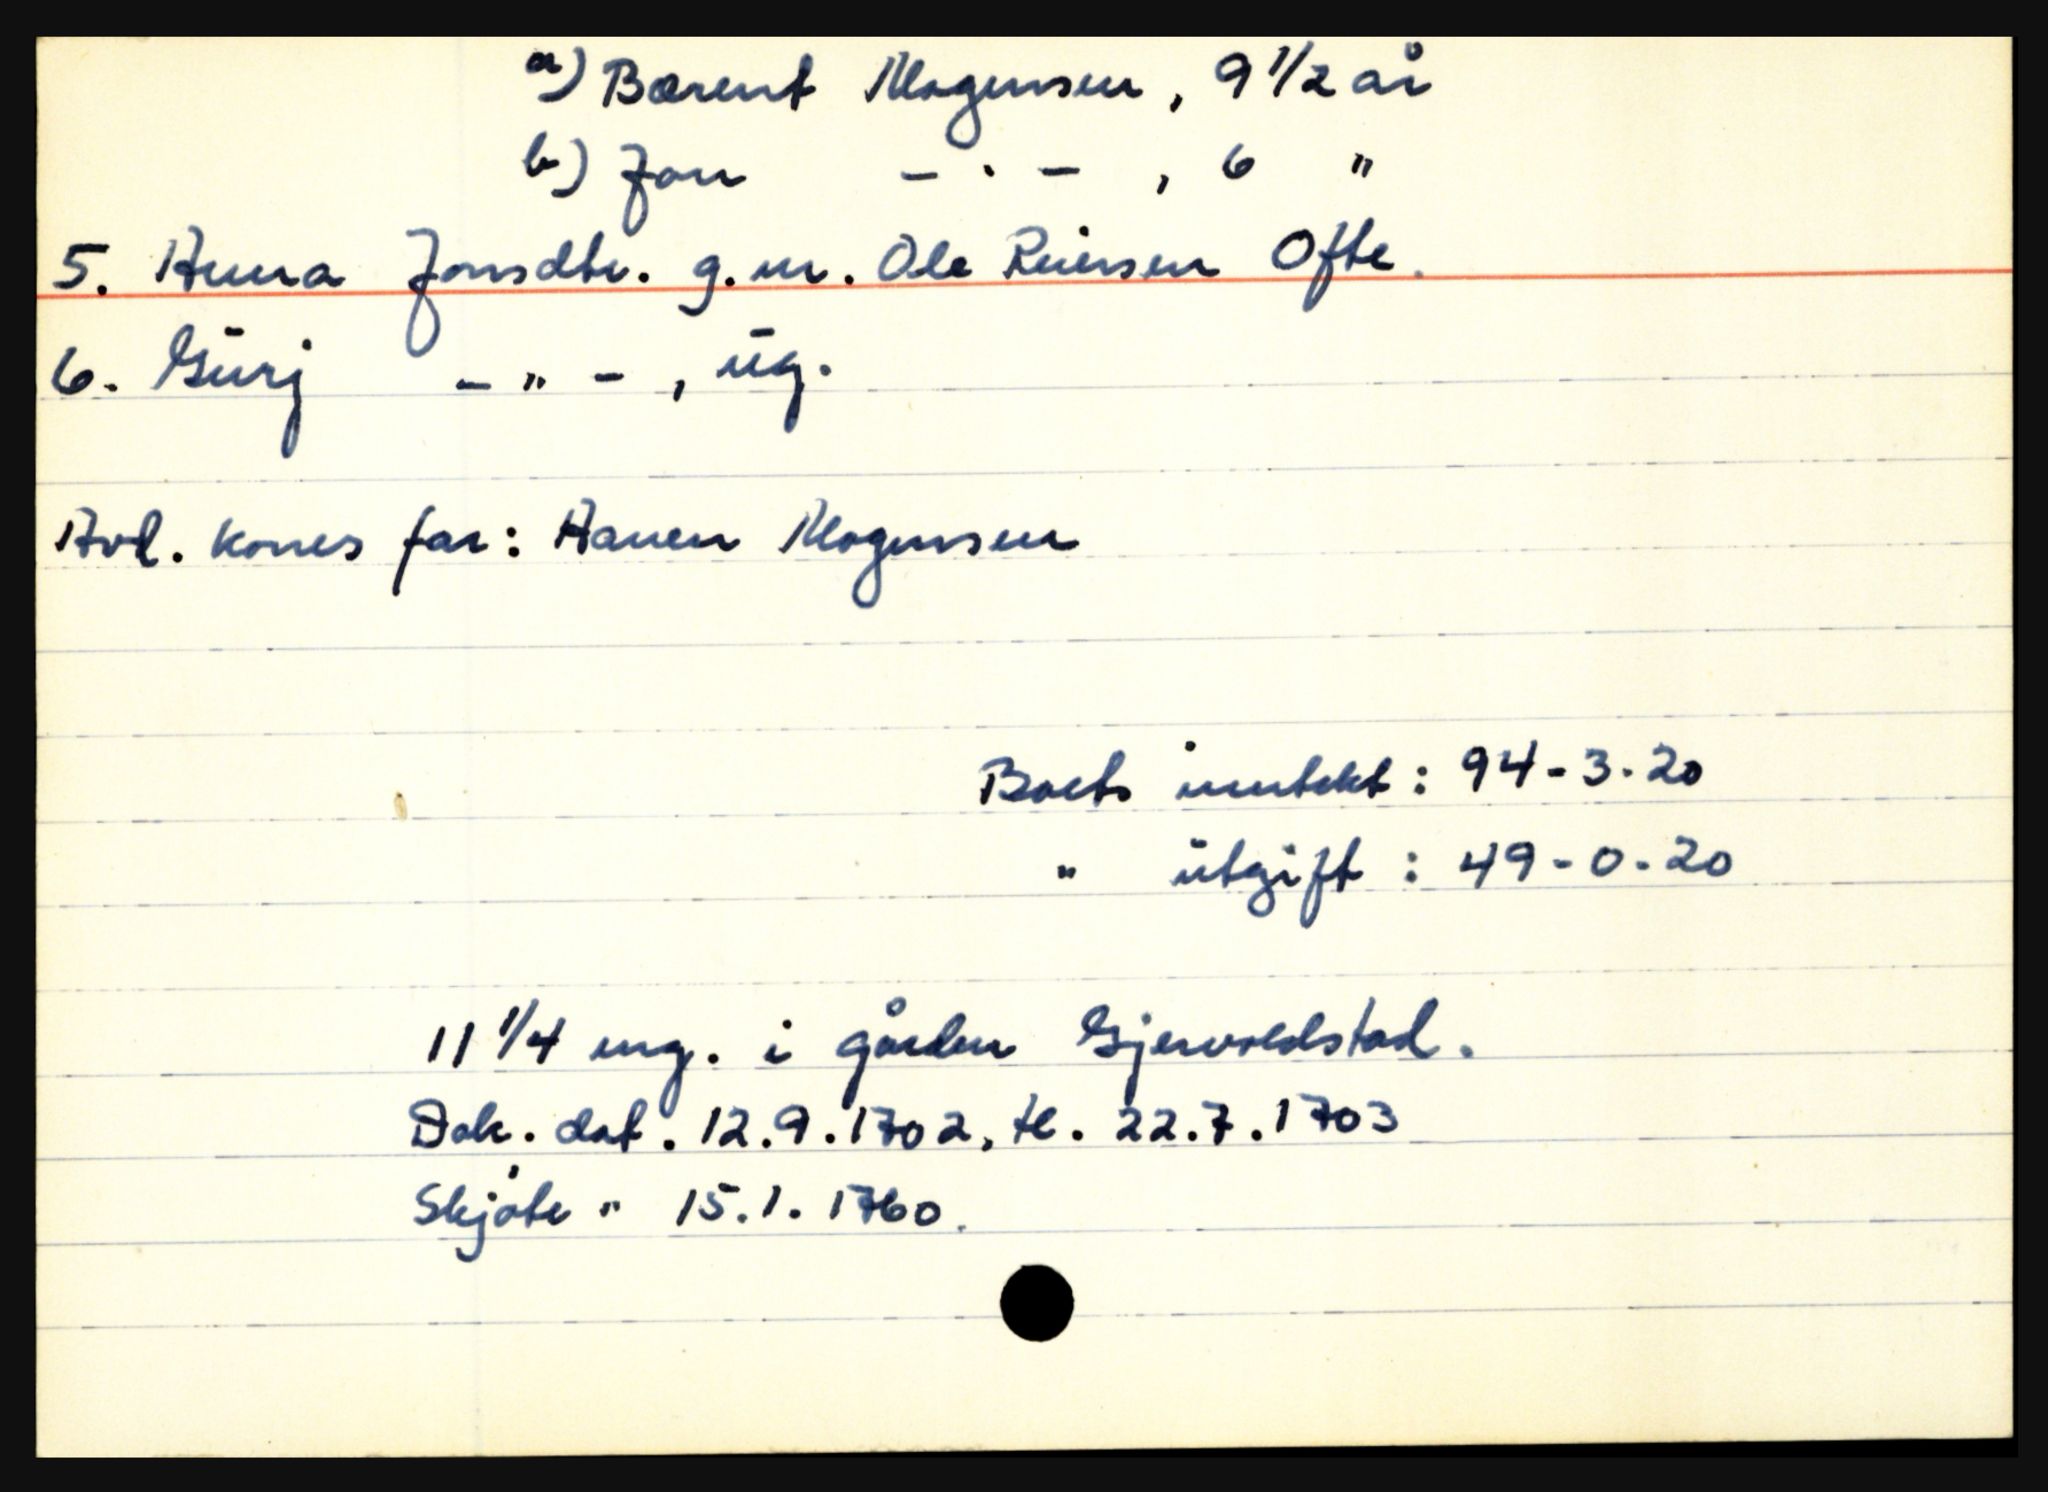 a) Bærent Mogensen, 9 1/2 år
b) Jon - · - , 6 "
5. Anna Jonsdtr. g.m. Ole Reiersen Ofte.
6. Gurj - " - , ug.
Avd. kones far: Hauen Mogensen
Boets inntekt: 94-3-20
" utgift: 49-0-20
11 1/4 mg. i gården Gjervoldstad.
Dok. dat. 12.9.1702, tl. 22.7.1703
Skjøte " 15.1.1760.